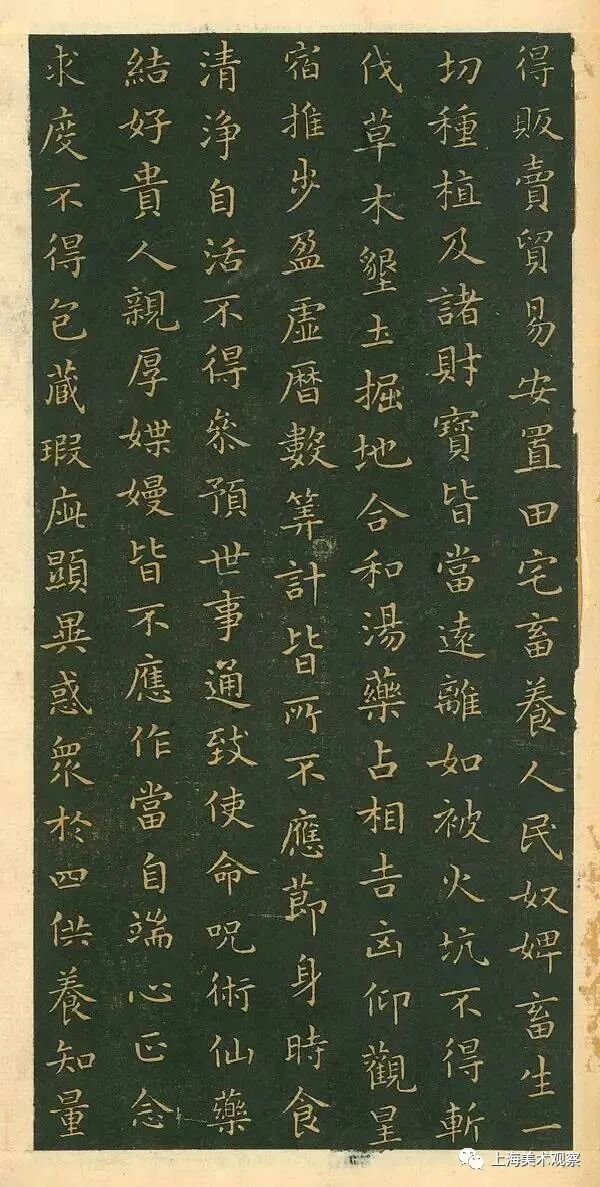 得販賣貿易安置田宅畜養人民奴婢畜生一
切種植及諸財寶皆當遠離如被火坑不得斬
伐草木墾土掘地合和湯藥占相吉凶仰觀星
宿推步盈虛曆數筭計皆所不應節身時食
清淨自活不得參預世事通致使命呪術仙藥
結好貴人親厚媟嫚皆不應作當自端心正念
求度不得包藏瑕疵顯異惑眾於四供養知量
上海美术观察